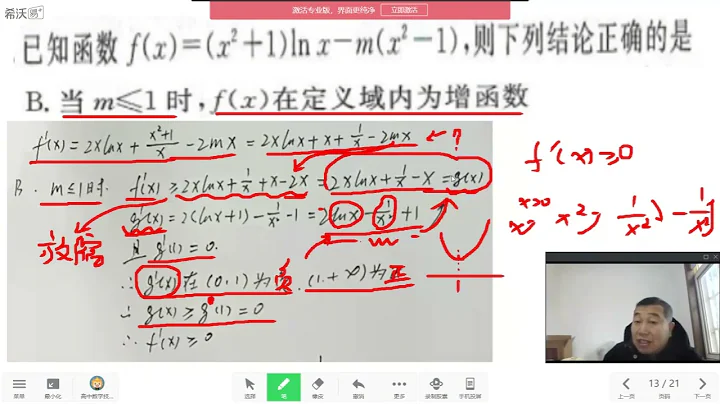 希沃易+
激活专业版，界面更纯净 立即激活
已知函数 f(x)=(x²+1)ln x−m(x²−1),则下列结论正确的是
B. 当 m≤1 时, f(x)在定义域内为增函数
f'(x)=2xlnx+(x²+1)/x−2mx=2xlnx+x+1/x−2mx ←?
f'(x)≥0
B. m≤1时. f'(x)≥2xlnx+1/x+x−2x=2xlnx+1/x−x=g(x)
x>0
x² 1/x² −1/x²
g'(x)=2(lnx+1)−1/x²−1=2lnx−1/x²+1
且 g'(1)=0.
∴ g'(x)在(0,1)为负. (1,+∞)为正
∴ g(x)≥g(1)=0
∴ f'(x)≥0
菜单
最小化
高中数学技...
选择
笔
橡皮
撤销
更多
录制胶囊
手机投屏
上一页
13 / 21
页码
下一页